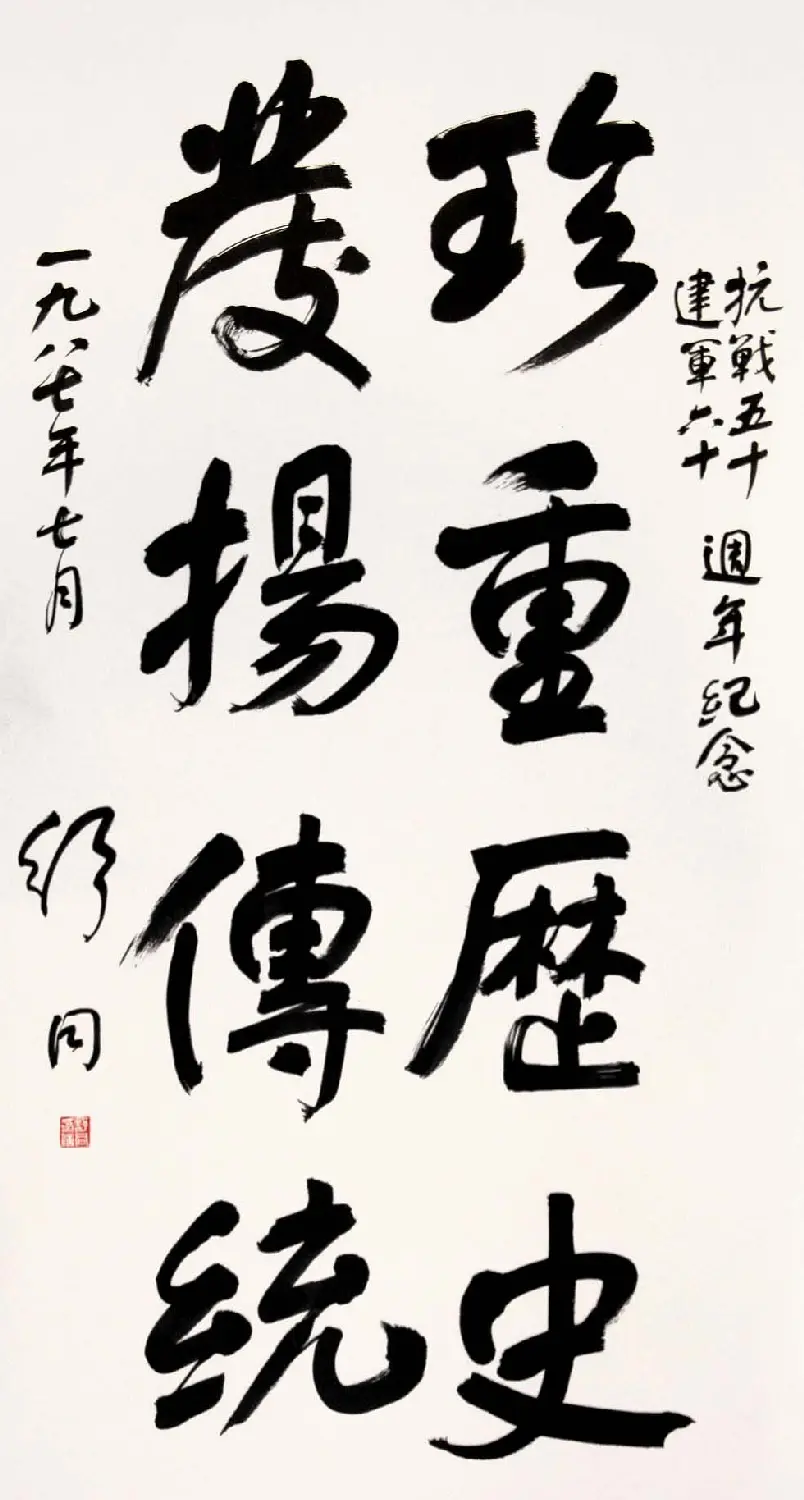 抗戰五十
建軍六十
週年紀念
珍重歷史
發揚傳統
一九八七年七月
舒同